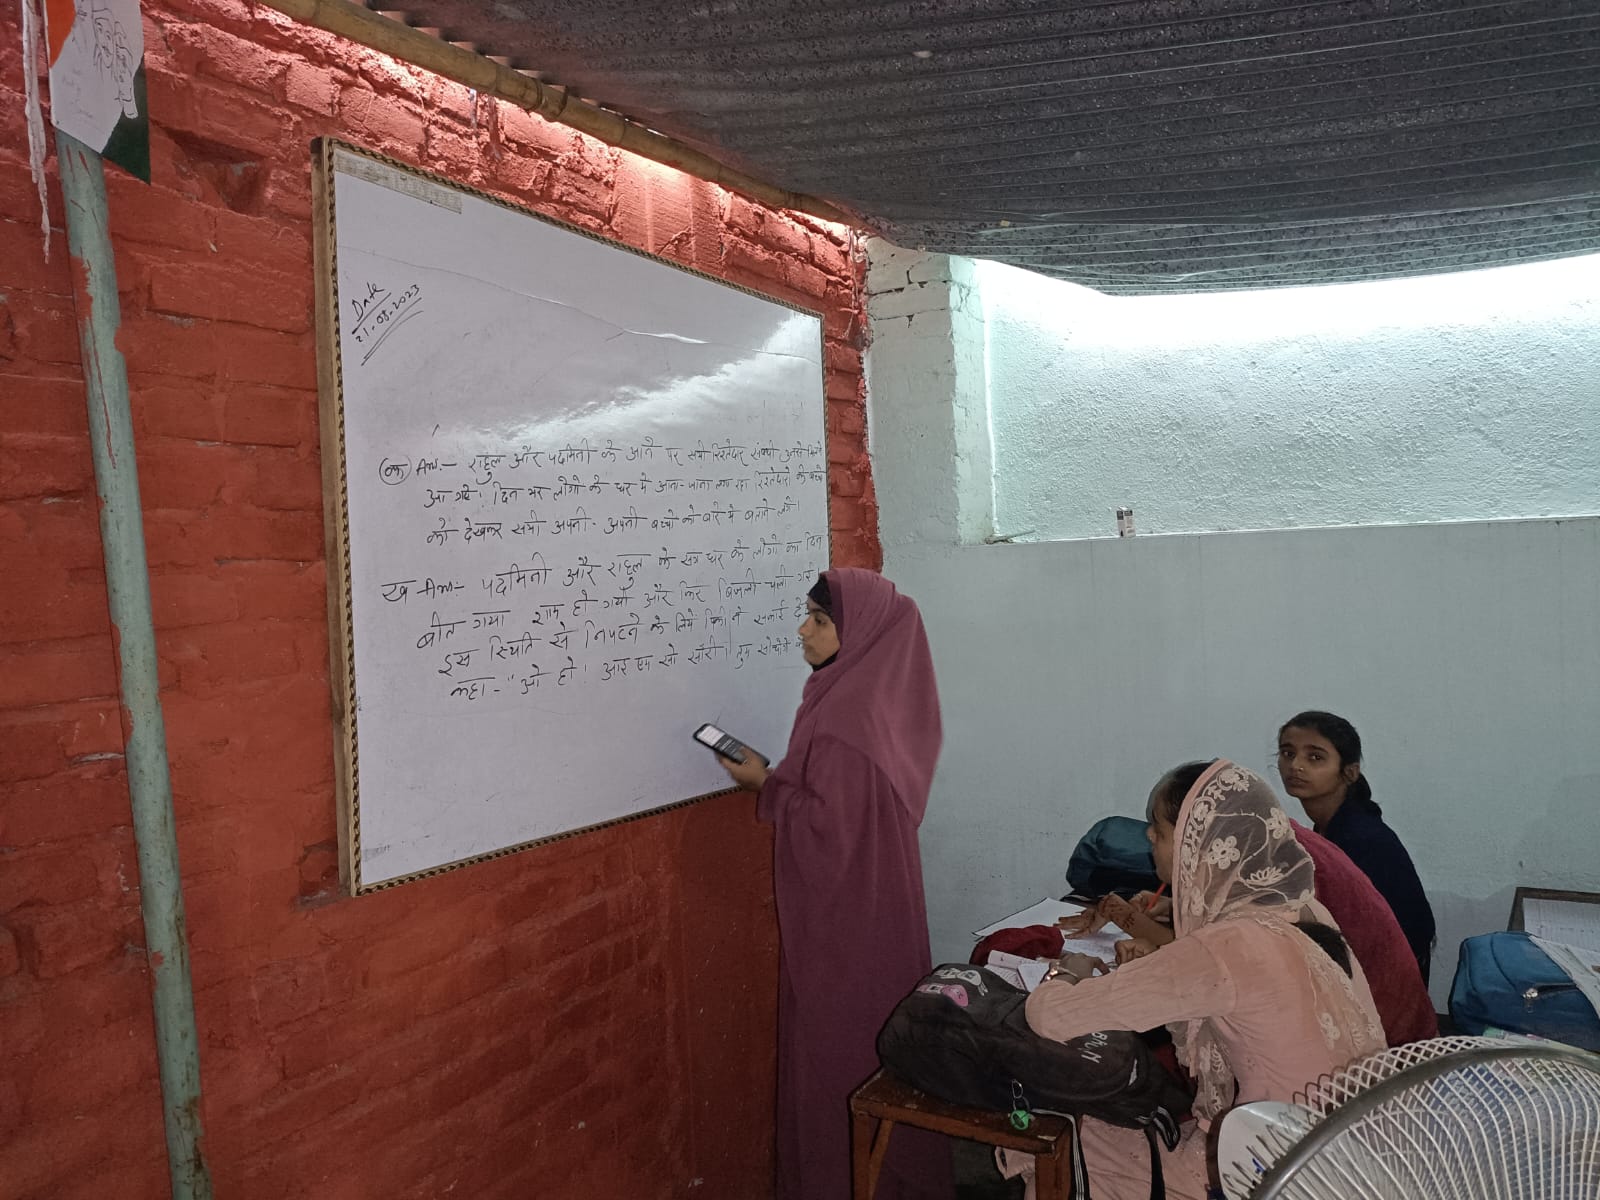 Date
21-08-2023
(क) Ans:- राहुल और पदमिनी के आने पर सभी रिश्तेदार संबन्धी उनसे मिलने
आ गये। दिन भर लोगो के घर मे आना-जाना लगा रहा रिश्तेदारो के बच्चो
को देखकर सभी अपनी-अपनी बच्चो के बारे मे बताने लगे।
ख Ans:- पदमिनी और राहुल के सत्र घर के लोगो का दिन
बीत गया शाम हो गयी और फिर बिजली चली गई।
इस स्थिति से निपटने के लिये पिंकी ने सफाई
कहा - "ओ हो! आइ एम सो सॉरी। तुम सोचोगे